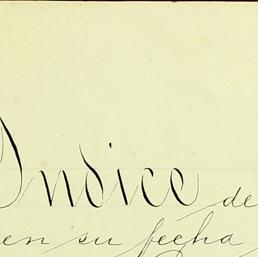 Indice de
en su fecha